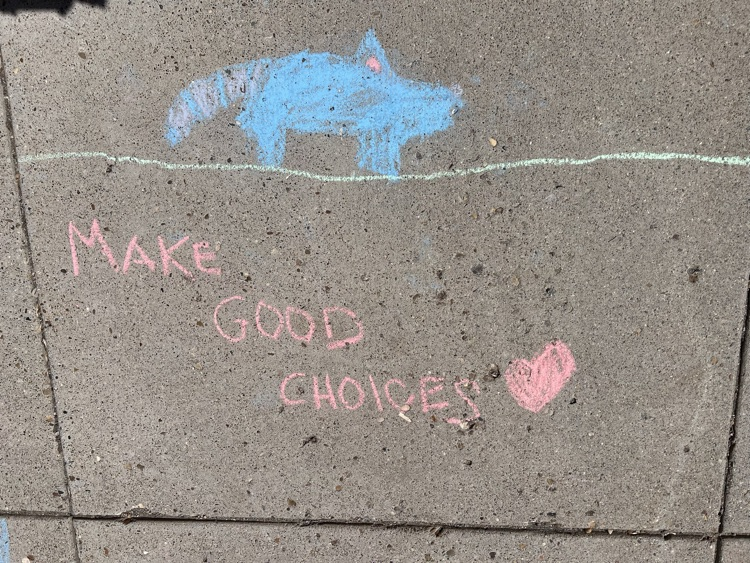 MAKE
GOOD
CHOICES